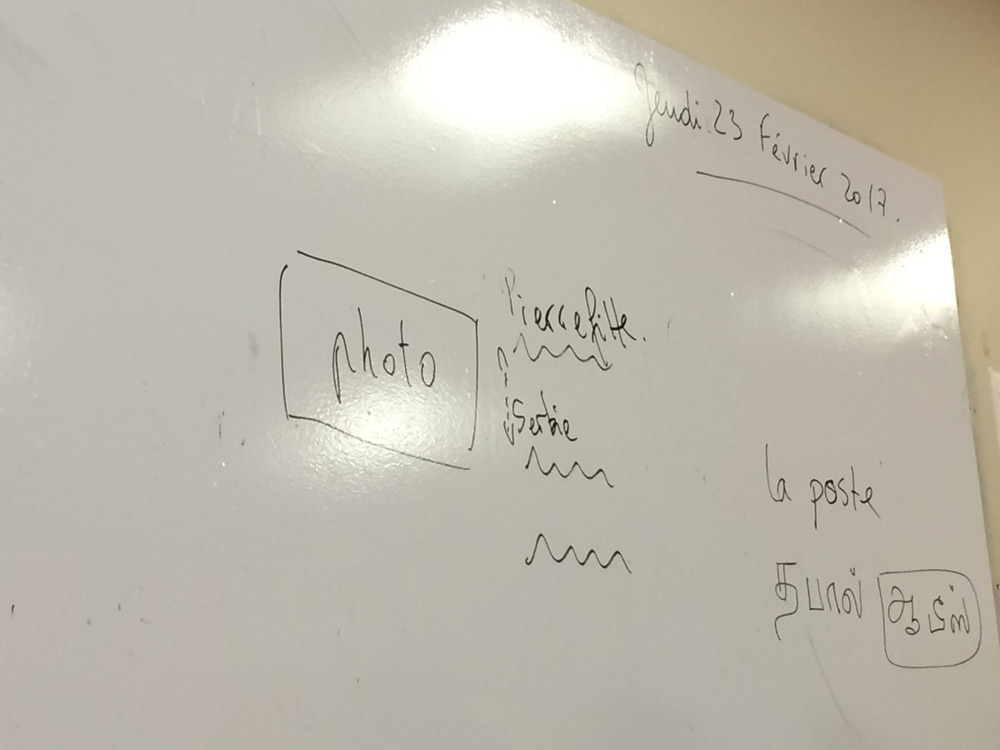 Jeudi 23 Février 2017.
photo
Pierrefitte.
Serbie
la poste
தபால்